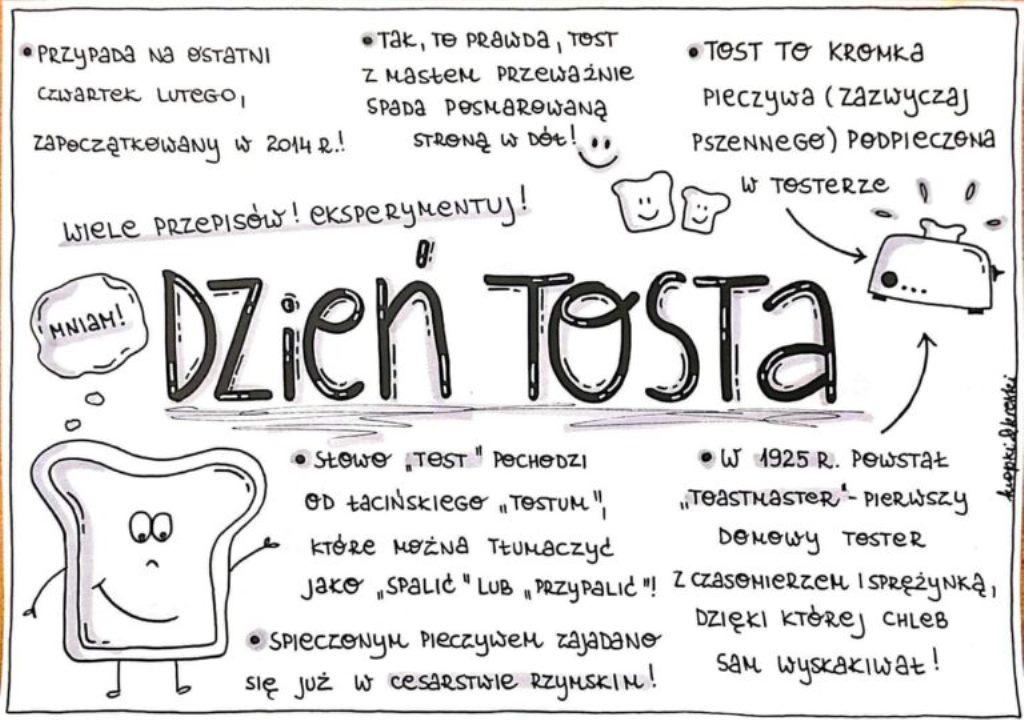 • PRZYPADA NA OSTATNI
CZWARTEK LUTEGO,
ZAPOCZĄTKOWANY W 2014 R.!
• TAK, TO PRAWDA, TOST
Z MASŁEM PRZEWAŻNIE
SPADA POSMAROWANĄ
STRONĄ W DÓŁ!
• TOST TO KROMKA
PIECZYWA (ZAZWYCZAJ
PSZENNEGO) PODPIECZONA
W TOSTERZE
WIELE PRZEPISÓW! EKSPERYMENTUJ!
MNIAM!
DZIEŃ TOSTA
• SŁOWO „TOST" POCHODZI
OD ŁACIŃSKIEGO „TOSTUM",
KTÓRE MOŻNA TŁUMACZYĆ
JAKO „SPALIĆ" LUB „PRZYPALIĆ"!
• SPIECZONYM PIECZYWEM ZAJADANO
SIĘ JUŻ W CESARSTWIE RZYMSKIM!
• W 1925 R. POWSTAŁ
„TOASTMASTER"- PIERWSZY
DOMOWY TOSTER
Z CZASOMIERZEM I SPRĘŻYNKĄ,
DZIĘKI KTÓREJ CHLEB
SAM WYSKAKIWAŁ!
kropki&kreski